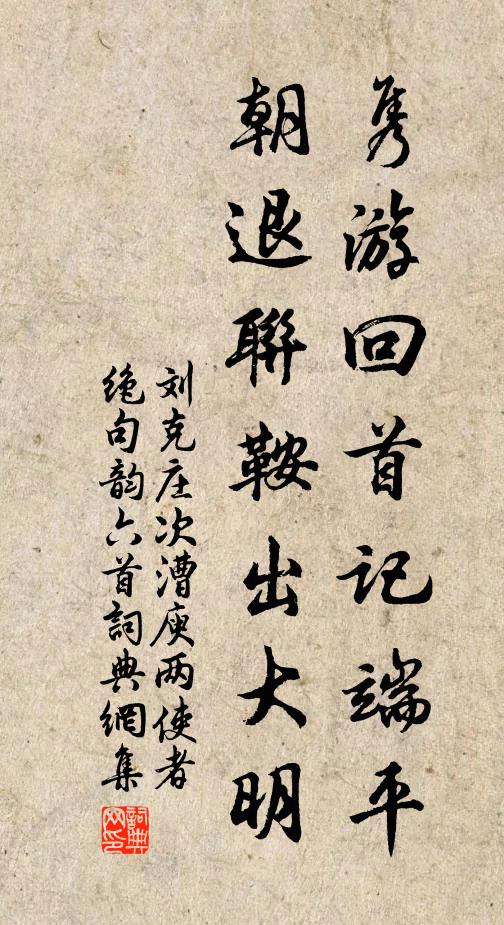 隽游回首记端平
朝退聯鞍出大明
刘克庄次漕庾两使者
绝句韵六首詞典網集
詞典网印